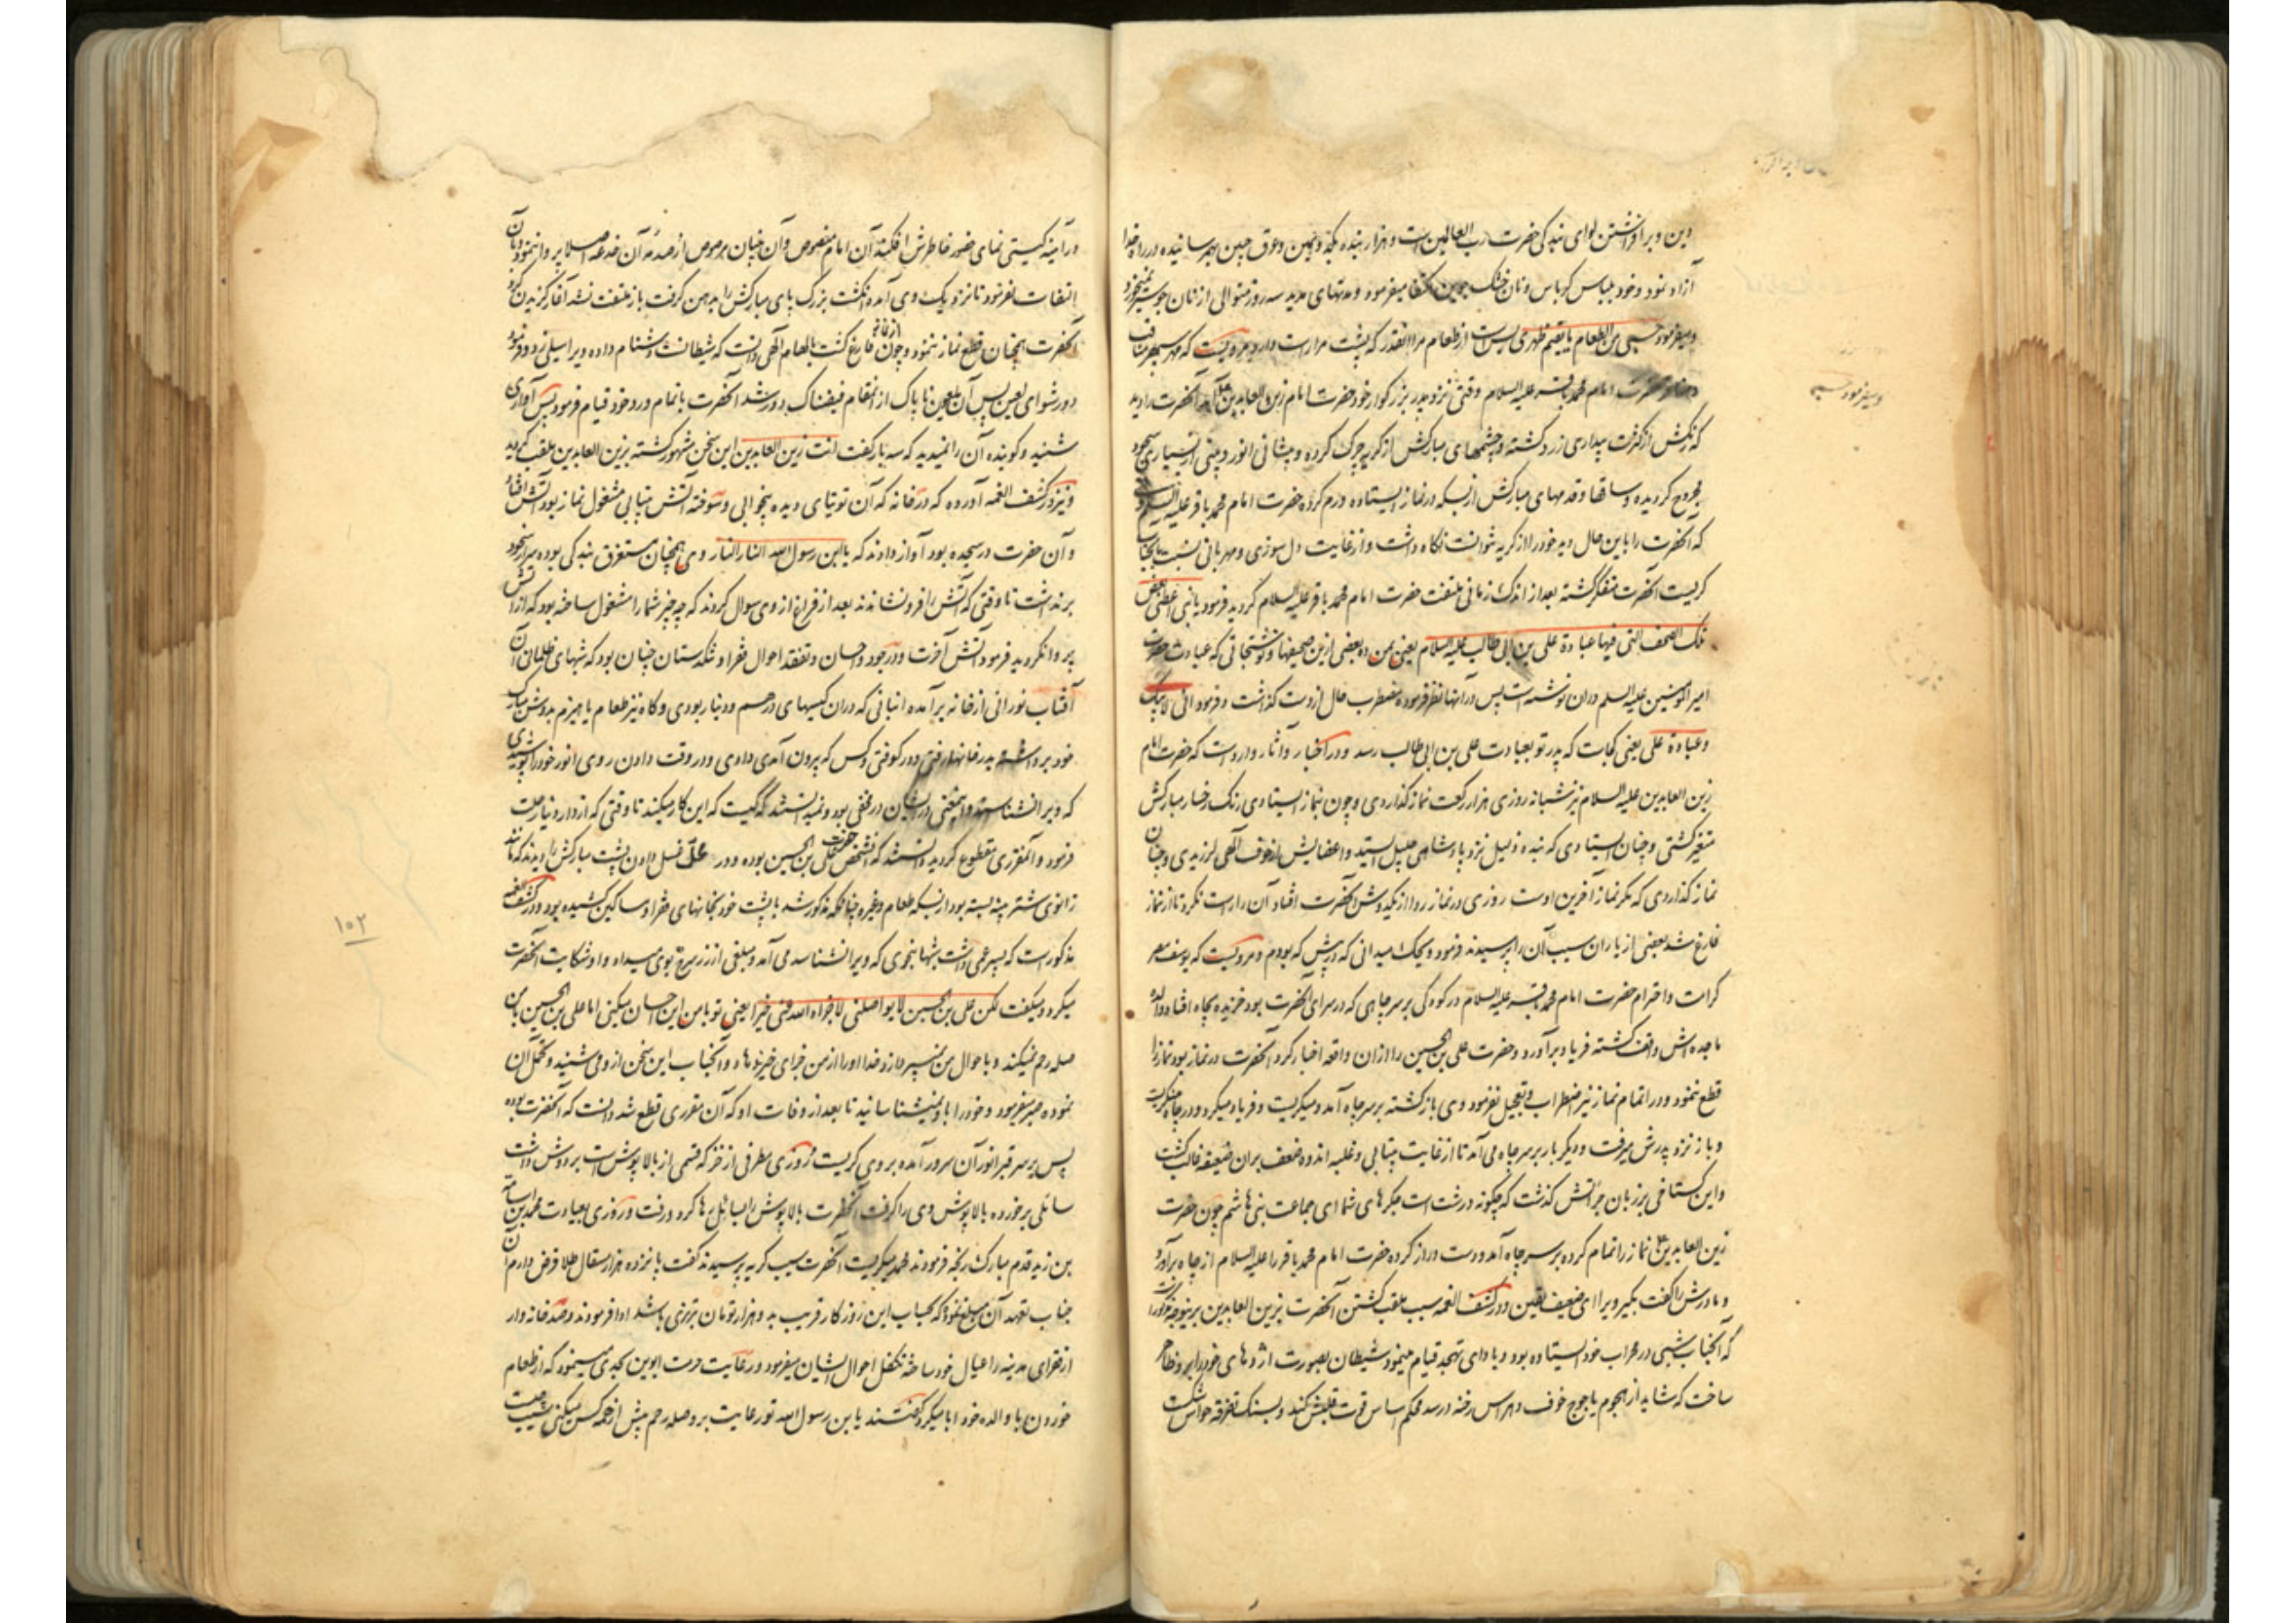 دین و برافراشتن لوای بندگی حضرت رب العالمین است و هزار بنده بکد یمین و عرق جبین بهم رسانیده در راه خدا
آزاد نمود و خود بلباس کرباس و نان خشک جوین اکتفا میفرمود و مدتهای مدید سه روز متوالی از نان جو سیر نمیخورد
و میفرمود حسبی من الطعام ما یقیم ظهری بس است از طعام مرا آنقدر که پشت مرا راست دارد و مرویست که
حضرت امام محمد باقر علیه السلام وقتی نزد پدر بزرگوار خود حضرت امام زین العابدین آمد آنحضرت را دید
که رنگش از کثرت بیداری زرد گشته و چشمهای مبارکش از گریه چرک کرده و پیشانی انور و بینی از بسیاری سجود
مجروح گردیده و ساقها و قدمهای مبارکش از بسکه در نماز ایستاده ورم کرده حضرت امام محمد باقر علیه السلام
که آنحضرت را باین حال دید خود را از گریه نتوانست نگاه داشت و از غایت دل سوزی و مهربانی نسبت بآنجناب
گریست آنحضرت متفکر گشته بعد از اندک زمانی ملتفت حضرت امام محمد باقر علیه السلام گردید فرمود یا بنی اعطنی بعض
تلک الصحف التی فیها عبادة علی بن ابی طالب علیه السلام یعنی بمن ده بعضی ازین صحیفها و نوشتجاتی که عبادت حضرت
امیر المومنین علیه السلم در آن نوشته است پس در آنها نظر فرموده مضطرب حال از دست گذاشت و فرمود
و عبادة علی یعنی کجاست که پدر تو بعبادت علی بن ابی طالب رسد و در اخبار و آثار وارد است که حضرت امام
زین العابدین علیه السلام نیز شبانه روزی هزار رکعت نماز گذاردی و چون بنماز ایستادی رنگ رخسار مبارکش
متغیر گشتی و چنان ایستادی که بنده ذلیل نزد پادشاهی جلیل ایستد و اعضایش از خوف الهی لرزیدی و چنان
نماز گذاردی که مگر نماز آخرین اوست روزی در نماز ردا از یکدوش آنحضرت افتاد آن را راست نکرد تا از نماز
فارغ شد بعضی از یاران سبب آن را پرسیدند فرمود ویحک میدانی که در پیش که بودم و مرویست که یوسف مصر
کرامت و احترام حضرت امام محمد باقر علیه السلام در کودکی بر سر چاهی که در سرای آنحضرت بود خزیده بچاه افتاد والده
ماجده اش واقف گشته فریاد برآورد و حضرت علی بن الحسین را از آن واقعه اخبار کرد آنحضرت در نماز بود نماز را
قطع ننمود و در اتمام نماز نیز اضطراب و تعجیل نفرمود وی باز گشته بر سر چاه آمد و میگریست و فریاد میکرد و در چاه مینگریست
و باز نزد پدرش میرفت و دیگر بار بر سر چاه می آمد تا از غایت بیتابی و غلبه اندوه ضعف بر آن ضعیفه غالب گشت
و این گستاخی بر زبان جرأتش گذشت که چگونه درشت است جگرهای شما ای جماعت بنی هاشم چون حضرت
زین العابدین نماز را تمام کرده بر سر چاه آمد و دست دراز کرده حضرت امام محمد باقر را علیه السلام از چاه برآورد
و مادرش را گفت بگیر ویرا ای ضعیف یقین و در کشف الغمه سبب ملقب گشتن آنحضرت بزین العابدین برینوجه
که آنجناب شبی در محراب خود ایستاده بود و بادای تهجد قیام مینمود شیطان بصورت اژدهای خود را بر وی ظاهر
ساخت که شاید از هجوم یاجوج خوف و هراس رخنه در سد محکم اساس قربت قلبش کند و بسنگ تفرقه حواس شکست
و میفرمود حسبی
در آینه گیتی نمای حضور خاطرش افکند آن امام مخصوص و آن بنیان مرصوص از صدمه آن خدعه اصلا پروا ننمود و بآن
التفات نفرمود تا نزدیک وی آمده انگشت بزرگ پای مبارکش را بدهن گرفت باز ملتفت نشد آغاز گزیدن کرد
آنحضرت همچنان قطع نماز ننمود و چون از نماز فارغ گشت بالهام الهی دانست که شیطانست دشنام داده ویرا سیلی زد و فرمود
دور شو ای لعین پس آن ملعون ناپاک از آنمقام فیضناک دور شد آنحضرت باتمام ورد خود قیام فرمود پس آوازی
شنید و گوینده آن را نمیدید که سه بار گفت انت زین العابدین این سخن مشهور گشته بزین العابدین ملقب گردید
و نیز در کشف الغمه آورده که در خانه که آن توتیای دیده بیخوابی و سوخته آتش بیتابی مشغول نماز بود آتش افتاد
و آن حضرت در سجده بود آواز دادند که یا ابن رسول الله النار النار وی همچنان مستغرق بندگی بوده سر از سجود
برنداشت تا وقتی که آتش را فرو نشاندند بعد از فراغ از وی سوال کردند که چه چیز شما را مشغول ساخته بود که از آتش
پروا نکردید فرمود آتش آخرت و در جود و احسان و تفقد احوال فقرا و تنگدستان چنان بود که شبهای ظلمانی آن
آفتاب نورانی از خانه برآمده انبانی که در آن کیسهای درهم و دینار بودی و گاه نیز طعام یا هیزم بدوش مبارک
خود برداشته بدر خانها رفتی و در کوفتی و کس که بیرون آمدی دادی و در وقت دادن روی انور خود را پوشیدی
که ویرا نشناسند و اینمعنی در ایشان مخفی بود و نمیدانستند که کیست که این کار میکند تا وقتی که از دار دنیا رحلت
فرمود و آنمقرری مقطوع گردید دانستند که آنشخص حضرت علی بن الحسین بوده و در محل غسل دادن پشت مبارکش را دیدند که مانند
زانوی شتر پینه بسته بود از بسکه طعام و غیره چنانکه مذکور شد با پشت خود بخانهای فقرا و مساکین کشیده بود و در کشف الغمه
مذکور است که پسر عمی داشت شبها بنحوی که ویرا نشناسد می آمد و مبلغی از زر سرخ بوی میداد و او شکایت آنحضرت
میکرد و میگفت لکن علی بن الحسین لا یواصلنی لا جزاه الله عنی خیرا یعنی تو با من این احسان میکنی اما علی بن الحسین با من
صله رحم نمیکند و باحوال من نمیپردازد خدا او را از من جزای خیر ندهاد و آنجناب این سخن از وی می شنید و تحمل آن
نموده صبر میفرمود و خود را باو نمیشناسانید تا بعد از وفات او که آن مقرری قطع شد دانست که آنحضرت بوده
پس بر سر قبر انور آن سرور آمده بر وی گریست و روزی مطرفی از خز که قسمی از بالا پوش است بر دوش داشت
سائلی برخورده بالا پوش وی را گرفت آنحضرت بالا پوش را بسائل رها کرد و رفت و روزی بعیادت محمد بن اسامة
بن زید قدم مبارک رنجه فرمودند محمد میگریست آنحضرت سبب گریه پرسیدند گفت پانزده هزار مثقال طلا قرض دارم آن
جناب تعهد آن مبلغ نمود که بحساب این روزگار قریب به دو هزار تومان تبریزی باشد ادا فرمودند و صد خانه وار
از فقرای مدینه را عیال خود ساخته تکفل احوال ایشان میفرمود و رعایت حرمت ابوین بحدی مینمود که از طعام
خوردن با والده خود ابا میکرد گفتند یا بن رسول الله تو رعایت بر و صله رحم بیش از همه کس میکنی سبب چیست
۱۰۲